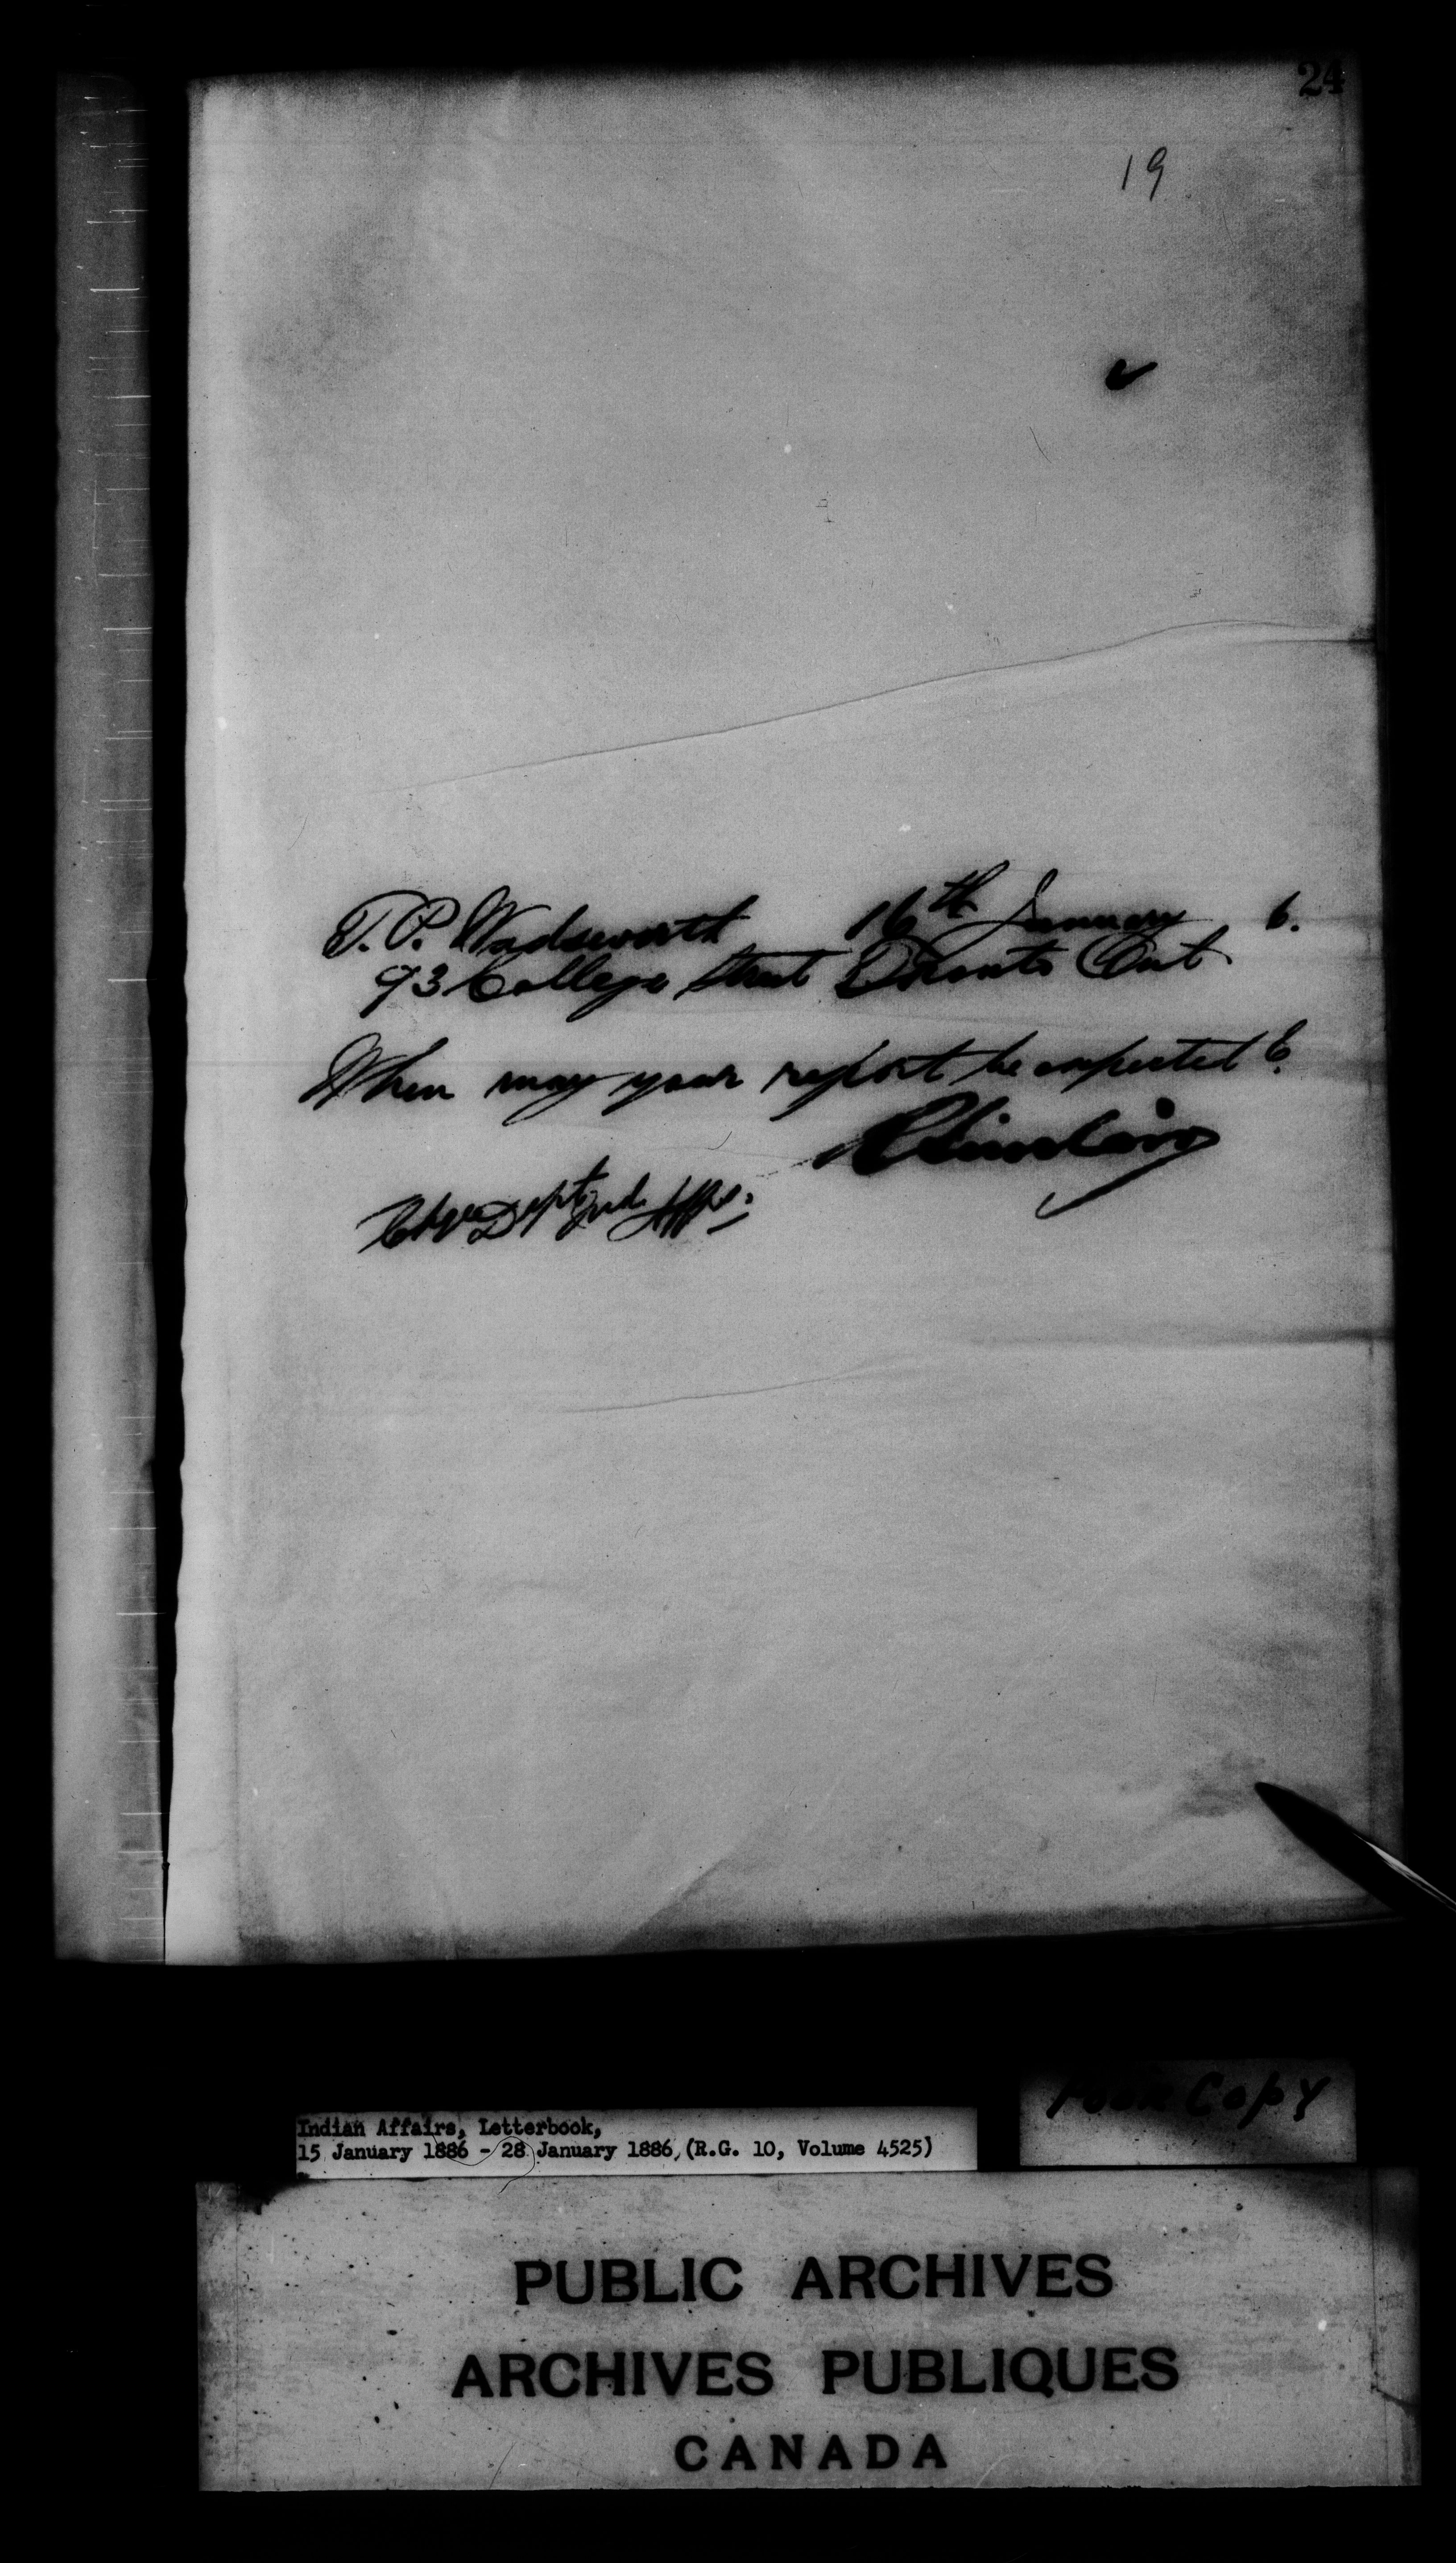 24
19
T. P. Wadsworth 16th January 6.
93 College Street Toronto Ont
When may your report be expected ?
Sinclair
Chge Dept Ind. Affs:
Poor Copy
Indian Affairs, Letterbook,
15 January 1886 - 28 January 1886, (R.G. 10, Volume 4525)
PUBLIC ARCHIVES
ARCHIVES PUBLIQUES
CANADA